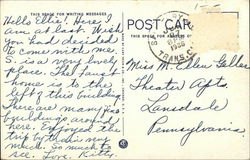 THIS SPACE FOR WRITING MESSAGES
POST CARD
Hello Ellie! Here I
am at last. Wish
you had decided
to come with me.
S. is a very lovely
place. The Faust
house is to the
left of this building.
There are many
buildings around
here. Enjoyed the
trip by train very
much. So much to
see. Love. Kitty.
Miss M. Ellen
Theater Apts.
Lansdale
Pennsylvania